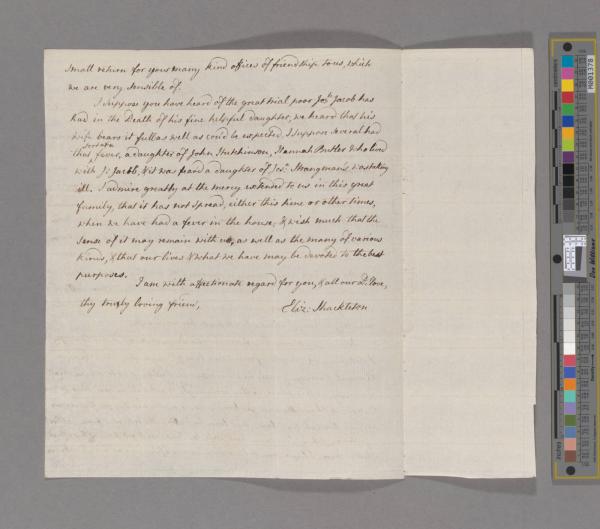 small return for your many kind offices of friendship to us, which
we are very sensible of.
I suppose you have heard of the great trial poor Jos.h Jacob has
had in the Death of his fine helpful daughter, we heard that his
wife bears it full as well as could be expected, I suppose several had
that sort of a fever, a daughter of John Hutchinson, Hannah Butler who lived
with Js Jacob, & it was fear'd a daughter of Jos.a Strangman's was taking
ill. I admire greatly at the mercy extended to us in this great
family, that it has not spread, either this time or other times,
when we have had a fever in the house, & wish much that the
sense of it may remain with us, as well as the many of various
kinds, & that our lives & what we have may be devoted to the best
purposes.
I am with affectionate regard for you, & all our d.r love,
thy truly loving friend,
Eliz: Shackleton
M001378